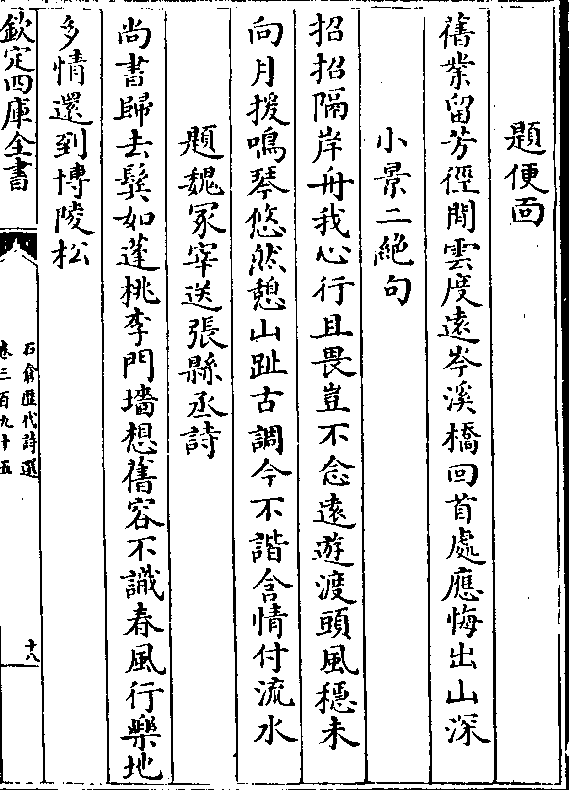 題便面
舊業留芳徑閒雲度遠岑溪橋回首處應悔出山深
小景二絶句
招招隔岸舟我心行且畏豈不念遠遊渡頭風穩未
向月援鳴琴悠然憩山趾古調今不諧含情付流水
題魏冢宰送張縣丞詩
尚書歸去鬂如蓬桃李門墻想舊容不識春風行樂地
多情還到博陵松
欽定四庫全書
石倉歴代詩選
卷三百九十五
十八